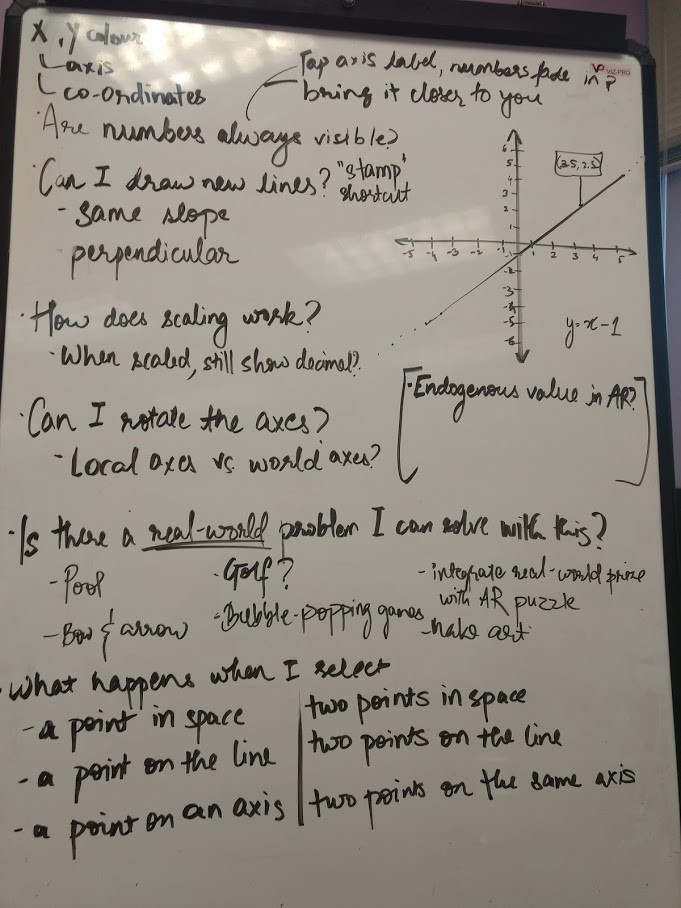 X, Y colour
- axis
- co-ordinates
Tap axis label, numbers fade in?
bring it closer to you
VIZ-PRO
Are numbers always visible?
Can I draw new lines? "stamp"
shortcut
- same slope
perpendicular
6
5
4
3
2
1
-5 -4 -3 -2 -1 1 2 3 4 5
-2
-3
-4
-5
-6
(3.5, 2.5)
y=x-1
· How does scaling work?
· When scaled, still show decimal?
· Endogenous value in AR?
· Can I rotate the axes?
- Local axes vs world axes?
· Is there a real-world problem I can solve with this?
- Pool
- Bow & arrow
· Golf?
- Bubble-popping games
- integrate real-world prize
with AR puzzle
- make art
· What happens when I select
- a point in space
- a point on the line
- a point on an axis
two points in space
two points on the line
two points on the same axis